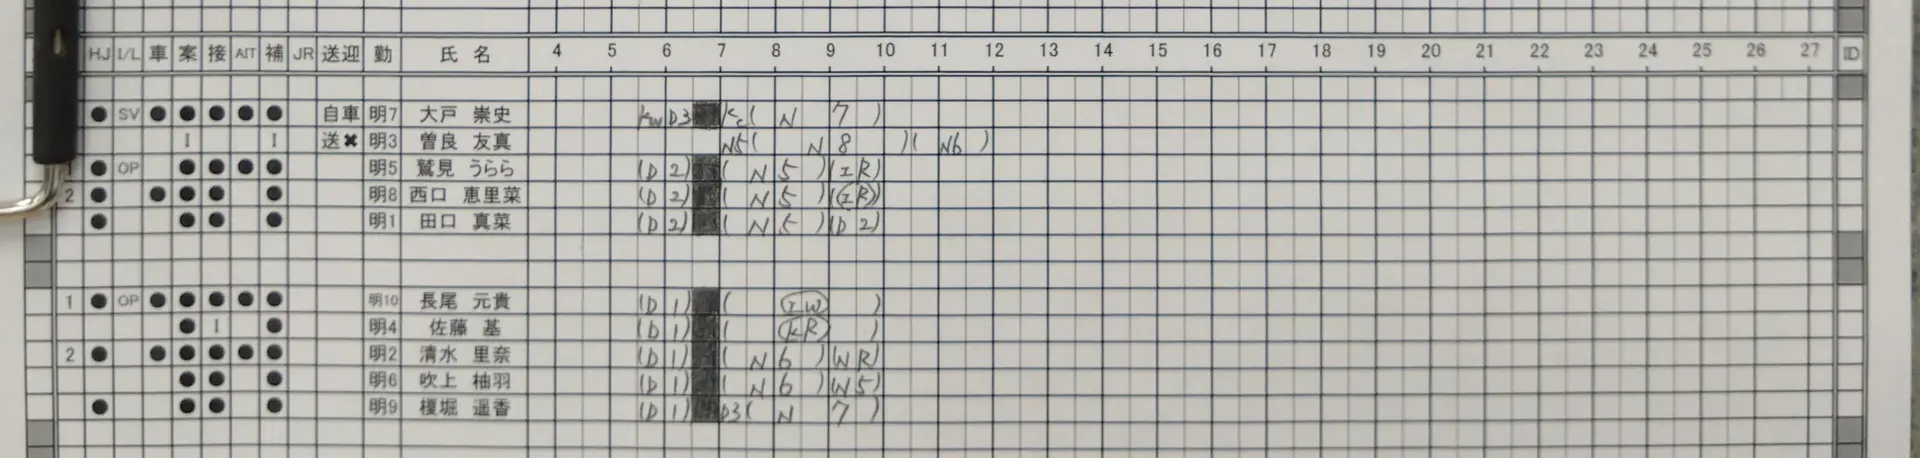 HJ I/L 車 案 接 AIT 補 JR 送迎 勤 氏名 4 5 6 7 8 9 10 11 12 13 14 15 16 17 18 19 20 21 22 23 24 25 26 27 ID
● SV ● ● ● ● ● 自車 明7 大戸 崇史 KW D3 ( N 7 )
I I 送✖ 明3 曽良 友真 N5 ( N 8 ) ( N6 )
● OP ● ● ● ● 明5 鷲見 うらら (D 2) ( N 5 ) (I R)
2 ● ● ● ● ● 明8 西口 恵里菜 (D 2) ( N 5 ) (I R)
● ● ● ● 明1 田口 真菜 (D 2) ( N 5 ) (D 2)
1 ● OP ● ● ● ● ● 明10 長尾 元貴 (D 1) ( I W )
● I ● 明4 佐藤 基 (D 1) ( KR )
2 ● ● ● ● ● ● 明2 清水 里奈 (D 1) ( N 6 ) (W R)
● ● ● 明6 吹上 柚羽 (D 1) ( N 6 ) (W 5)
● ● ● ● 明9 榎堀 遥香 (D 1) D3 ( N 7 )